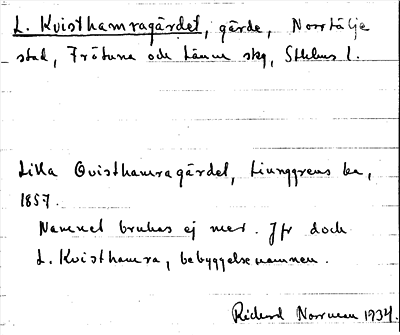 L. Kvisthamragärdet, gärde, Norrtälje
stad, Frötuna och Länna skg, Sthlms l.
Lilla Qvisthamragärdet, Ljunggrens ka,
1857.
Namnet brukas ej mer. Jfr dock
L. Kvisthamra, bebyggelsenamnen.
Rickard Norrman 1934.